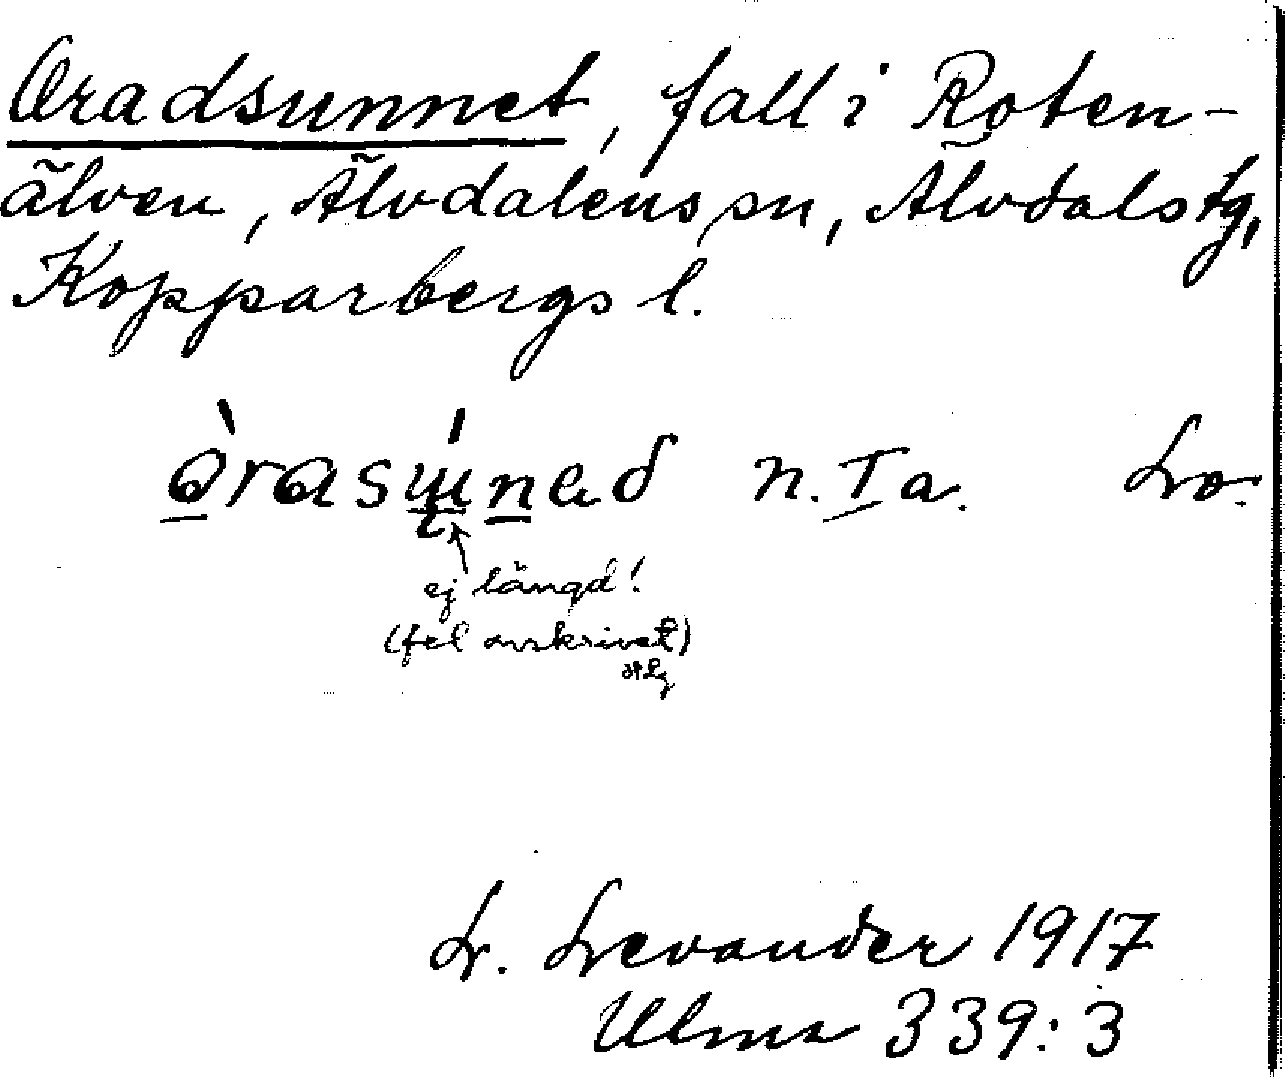 Oradsunnet, fall i Roten-
älven, Älvdalens sn, Älvdals tg,
Kopparbergs l.
n. I a. Lo.
ej längd!
(fel avskrivet)
L. Levander 1917
Ulma 339:3